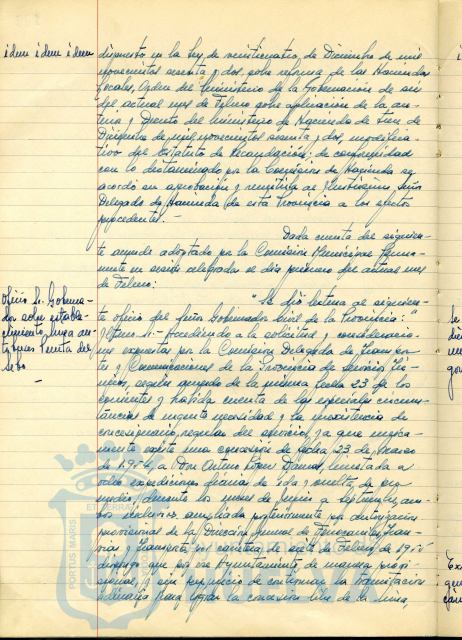 idem idem idem
dispuesto en la Ley de veinticuatro de Diciembre de mil
novecientos sesenta y dos sobre reforma de las Haciendas
Locales, Orden del Ministerio de la Gobernación de
del actual mes de Febrero sobre aplicación de la
y Decreto del Ministerio de Hacienda de
Diciembre de mil novecientos sesenta y dos, modifica-
tivo del Estatuto de Recaudación; de conformidad
con lo dictaminado por la Comisión de Hacienda se
acordó su aprobación y remitirla al Ilustrísimo Señor
Delegado de Hacienda de esta Provincia a los efectos
procedentes.-
Dada cuenta del siguien-
te acuerdo adoptado por la Comisión Municipal Perma-
nente en sesión celebrada el día primero del actual mes
de Febrero:
Oficio Sr. Goberna-
dor sobre estable-
cimiento línea au-
tobuses Puerta del
Sebo
-
"Se dió lectura al siguien-
te oficio del Señor Gobernador Civil de la Provincia: "
Iltmo. Sr:- Accediendo a la solicitud y consideracio-
nes expuestas por la Comisión Delegada de Transpor-
tes y Comunicaciones de la Provincial de Servicios Téc-
nicos, según acuerdo de la misma fecha 23 de los
corrientes y habida cuenta de las especiales circuns-
tancias de urgente necesidad y la inexistencia de
concesionario regular del servicio, ya que única-
mente existe una concesión de fecha 23 de Marzo
de 1954, a Don Arturo López Damas, limitada a
ocho expediciones diarias de ida y vuelta,
durante los meses de Junio a Septiembre, am-
bos inclusive, ampliada posteriormente por autorización
provisional de la Dirección General de Ferrocarriles, Tran-
vías y Transportes por carretera de siete de Febrero de
dispongo que por ese Ayuntamiento de manera provi-
sional, y sin perjuicio de continuar la tramitación
adecuada para lograr la concesión libre de la línea,
ET TERRA
PORTUS MARIS